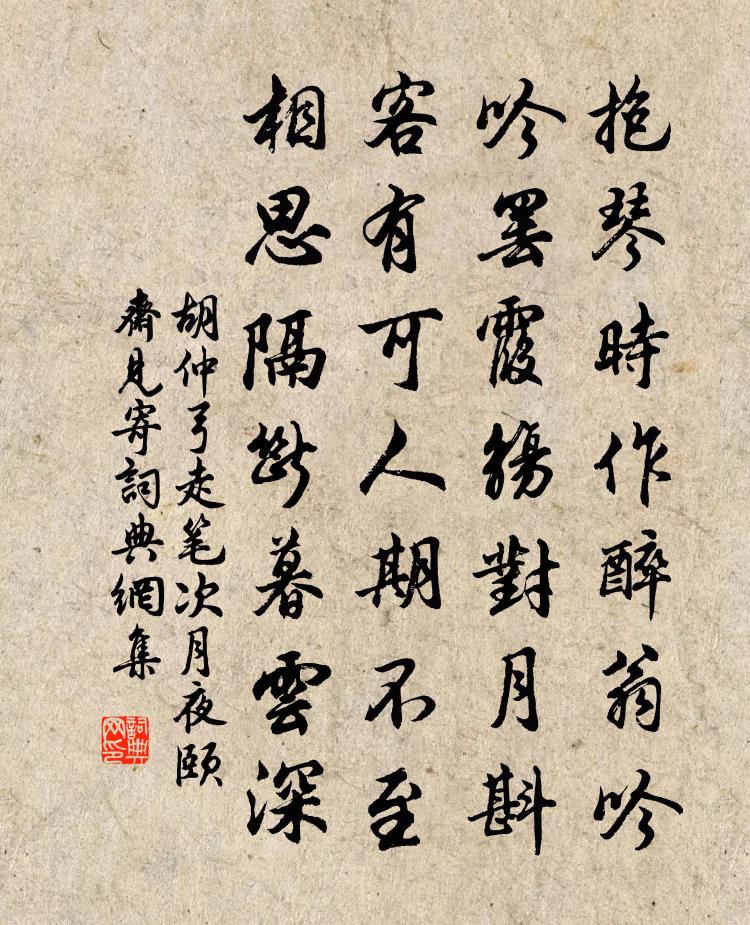 抱琴時作醉翁吟
吟罢霞觴對月斟
客有可人期不至
相思隔断暮雲深
胡仲弓走笔次月夜颐
齋見寄詞典網集
詞典
网印